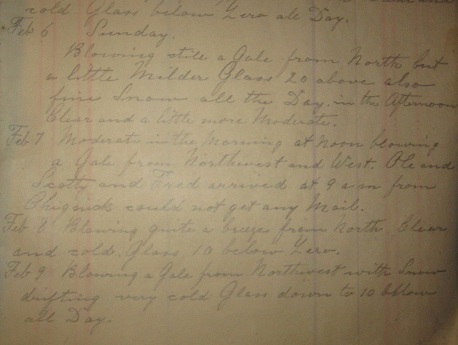 cold Glass below Zero all Day.
Feb 6 Sunday.
Blowing still a Gale from North but
a little Milder Glass 20 above also
fine Snow all the Day. in the Afternoon
Clear and a little more Moderate.
Feb 7 Moderate in the Morning at Noon blowing
a Gale from Northwest and West. Ole and
Scotty and Fred arrived at 9 a.m from
could not get any Mail.
Feb 8 Blowing quite a breeze from North. Clear
and cold. Glass 10 below Zero.
Feb 9 Blowing a Gale from Northwest with Snow
drifting very cold Glass down to 10 below
all Day.